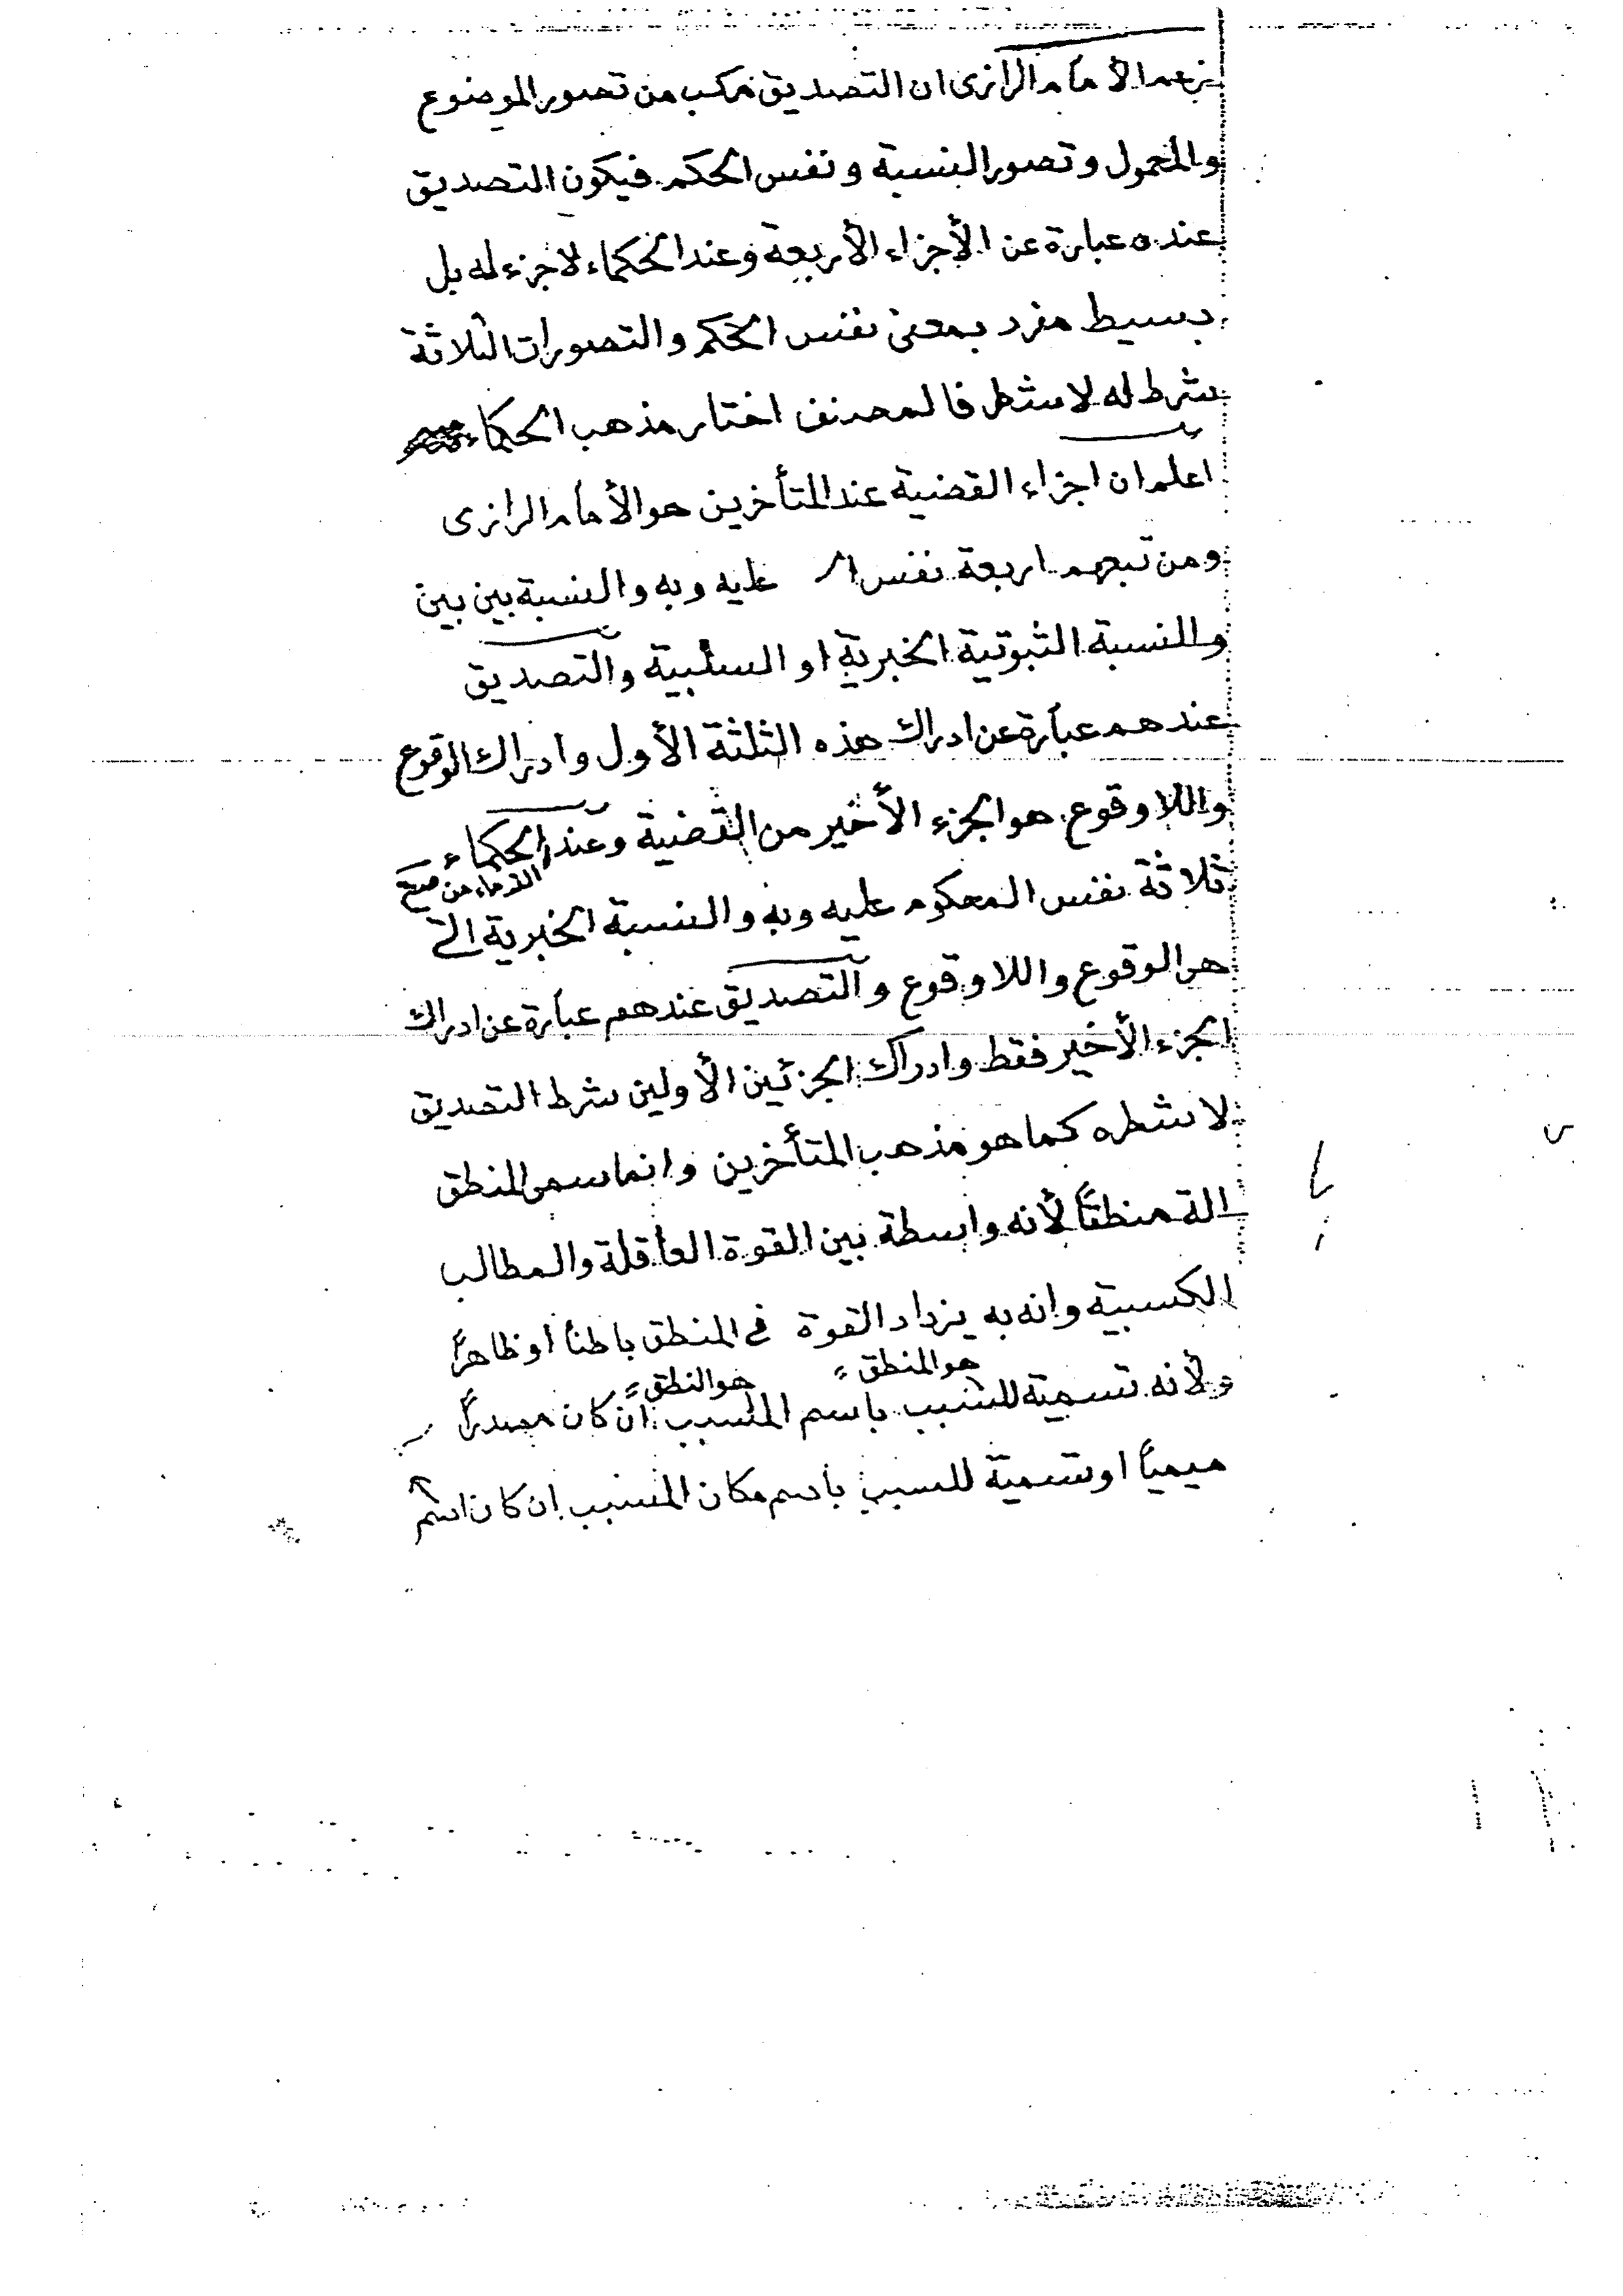 زعم الأمام الرازى ان التصديق مركب من تصور الموضوع
والمحمول وتصور النسبة ونفس الحكم فيكون التصديق
عنده عبارة عن الأجزاء الأربعة وعند الحكماء لا جزء له بل
بسيط مفرد بمعنى نفس الحكم والتصورات الثلاثة
شرط له لا شطر فالمصنف اختار مذهب الحكماء
اعلم ان اجزاء القضية عند المتأخرين هو الأمام الرازى
ومن تبعهم اربعة نفس عليه وبه والنسبة بين بين
والنسبة الثبوتية الخبرية او السلبية والتصديق
عندهم عبارة عن ادراك هذه الثلثة الأول وادراك الوقوع
واللا وقوع هو الجزء الأخير من القضية وعند الحكماء
القدماء من صح
ثلاثة نفس المحكوم عليه وبه والنسبة الخبرية التى
هى الوقوع واللا وقوع والتصديق عندهم عبارة عن ادراك
الجزء الأخير فقط وادراك الجزئين الأولين شرط التصديق
لا شطره كما هو مذهب المتأخرين وانما سمى المنطق
الة منطقاً لأنه واسطة بين القوة العاقلة والمطالب
الكسبية وانه به يزداد القوة فى المنطق باطناً أو ظاهراً
هو المنطق = هو النطق =
ولأنه تسمية للسبب باسم المسبب ان كان مصدراً
ميمياً او تسمية للسبب باسم مكان المسبب ان كان اسم